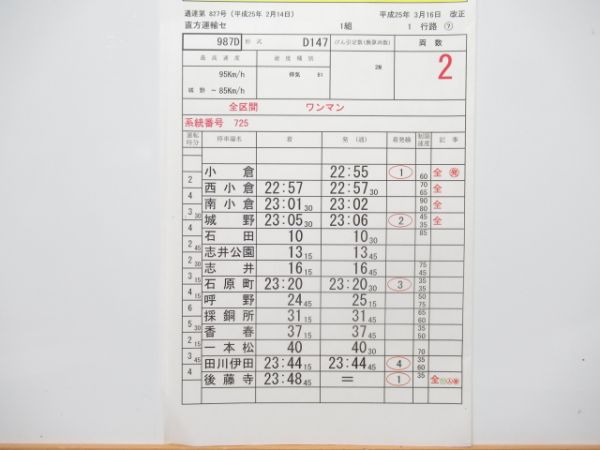 通達第 827号 (平成25年 2月14日) 平成25年 3月16日 改正
直方運輸セ 1組 1 行路 ⑦
987D 形式 D147 けん引定数(換算両数) 両数
最高速度 速度種別 2
95Km/h 停気
城野 ~ 85Km/h
全区間 ワンマン
系統番号 725
運転時分 停車場名 着 発 (通) 着発線 制限速度 記事
小倉 22:55 1 60 全 発
2
西小倉 22:57 22:57 30 70 65 全
4
南小倉 23:01 30 23:02 90 80 全
3 30
城野 23:05 30 23:06 2 45 35 全
4
石田 10 10 30 85
2 45
志井公園 13 15 13 45
2 30
志井 16 15 16 15 75 45
4 15
石原町 23:20 30 23:20 30 3 35 35
4 15
呼野 24 45 25 15 50 75
6
採銅所 31 15 31 45 65 60
5 30
香春 37 15 37 45 35 50
2 15
一本松 40 40 30 70
3 45
田川伊田 23:44 15 23:44 45 4 35 60
4
後藤寺 23:48 45 = 1 35 全